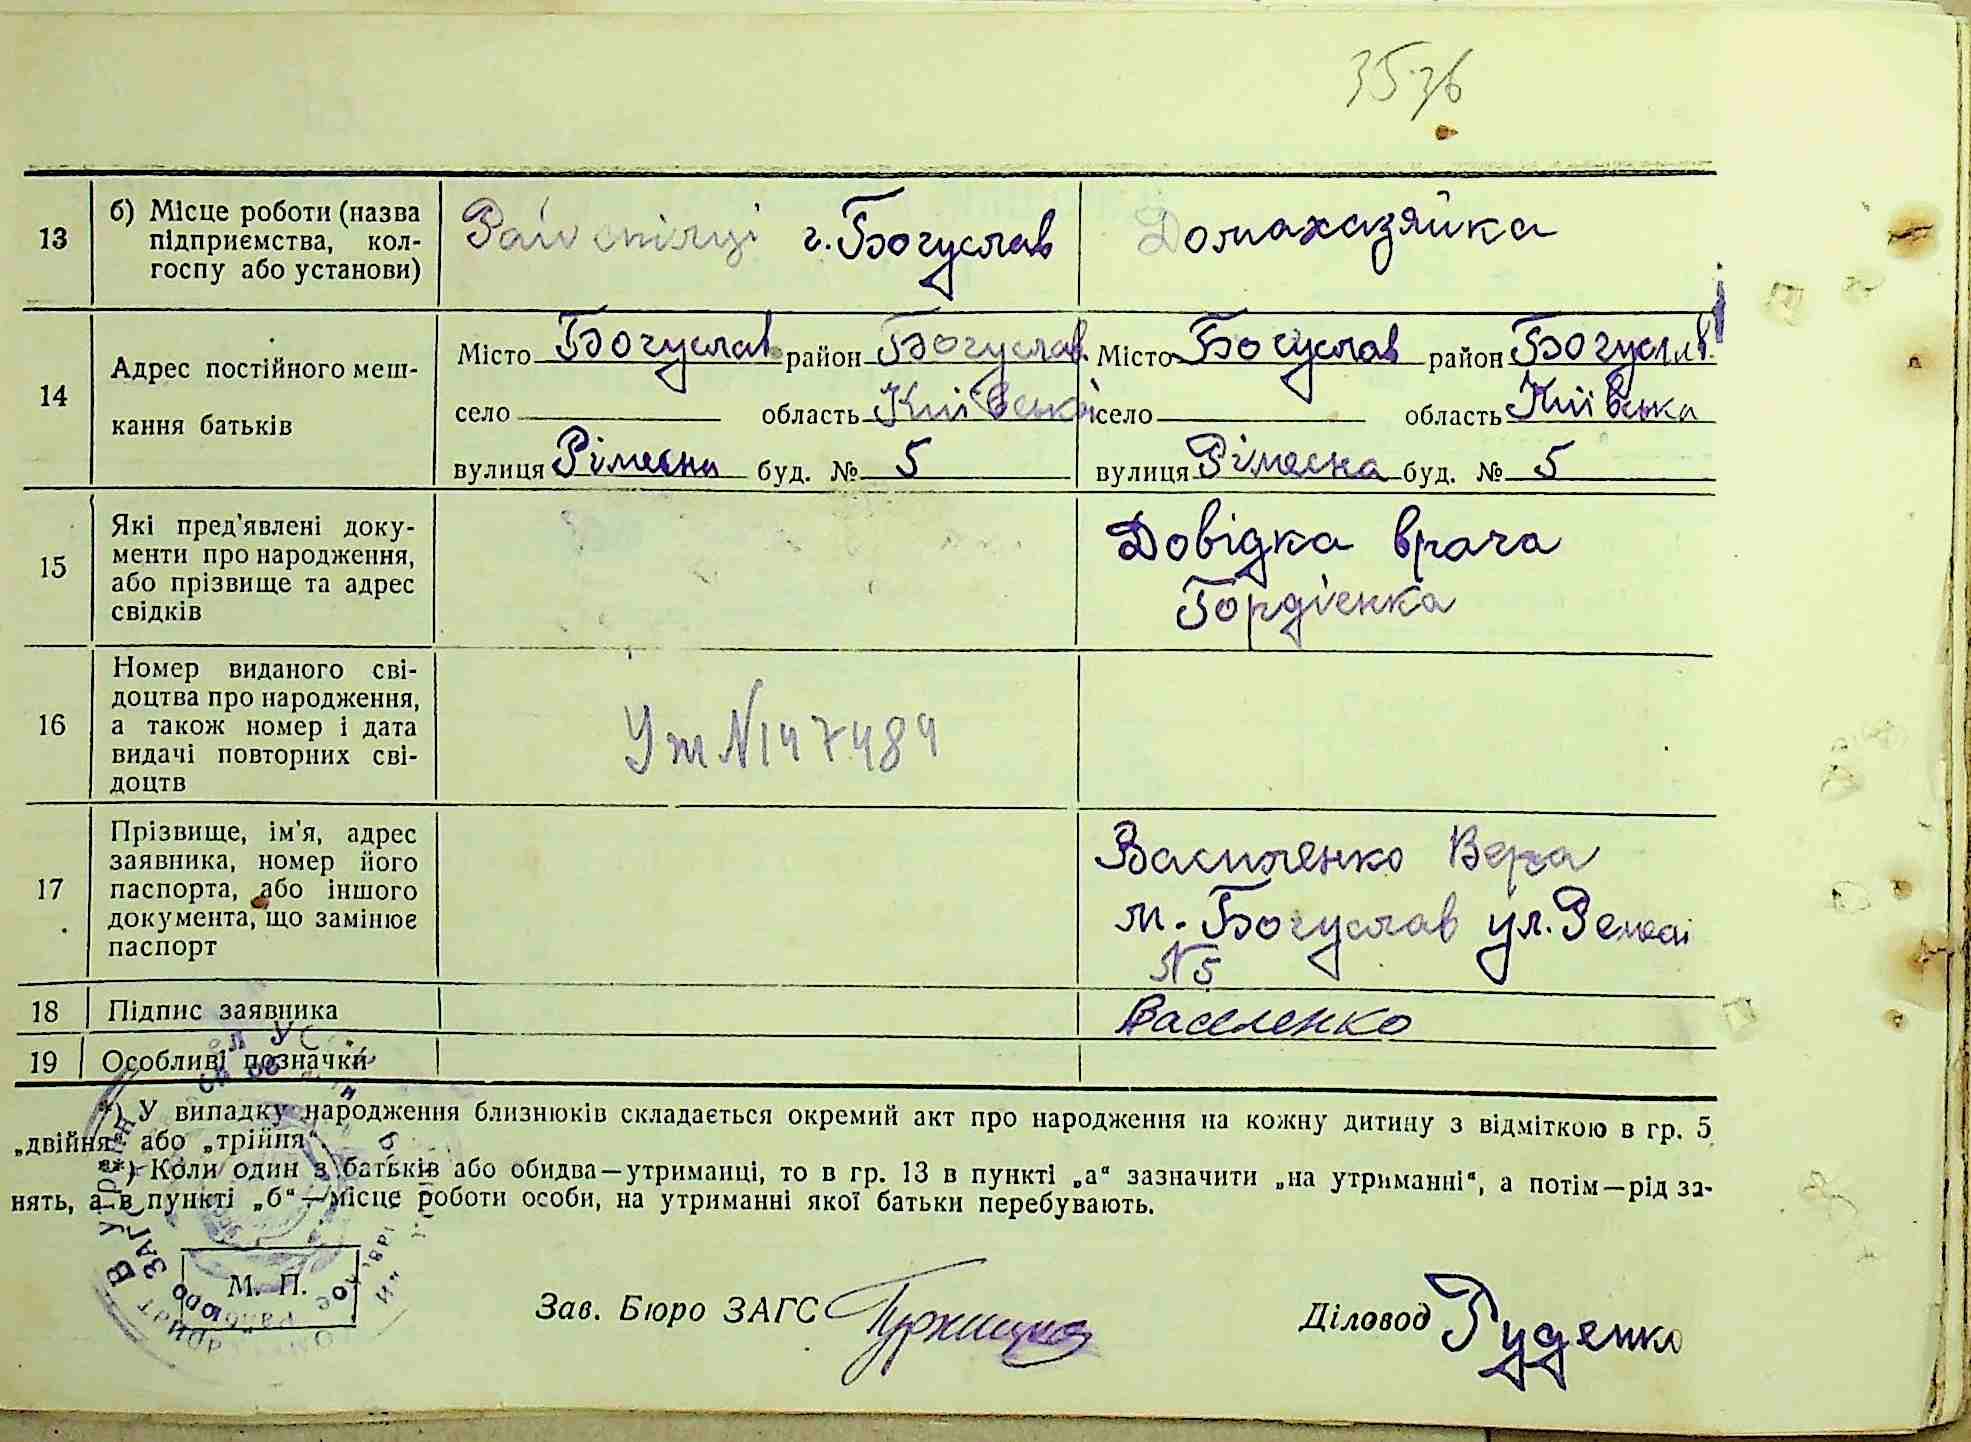 35 зв
13
б) Місце роботи (назва
підприємства, кол-
госпу або установи)
Райспілці г. Богуслав
Домахазяйка
14
Адрес постійного меш-
кання батьків
Місто Богуслав район Богуслав.
село область Київська
вулиця Рімесна буд. № 5
Місто Богуслав район Богуслав.
село область Київська
вулиця Рімесна буд. № 5
15
Які пред'явлені доку-
менти про народження,
або прізвище та адрес
свідків
Довідка врача
Гордієнка
16
Номер виданого сві-
доцтва про народження,
а також номер і дата
видачі повторних сві-
доцтв
Уж N147484
17
Прізвище, ім'я, адрес
заявника, номер його
паспорта, або іншого
документа, що замінює
паспорт
Василенко Вера
м. Богуслав ул.
N 5
18 Підпис заявника
Василенко
19 Особливі позначки
*) У випадку народження близнюків складається окремий акт про народження на кожну дитину з відміткою в гр. 5
„двійня“ або „трійня“.
**) Коли один з батьків або обидва—утриманці, то в гр. 13 в пункті „а“ зазначити „на утриманні“, а потім—рід за-
нять, а в пункті „б“—місце роботи особи, на утриманні якої батьки перебувають.
М. П.
Зав. Бюро ЗАГС
Діловод Руденко